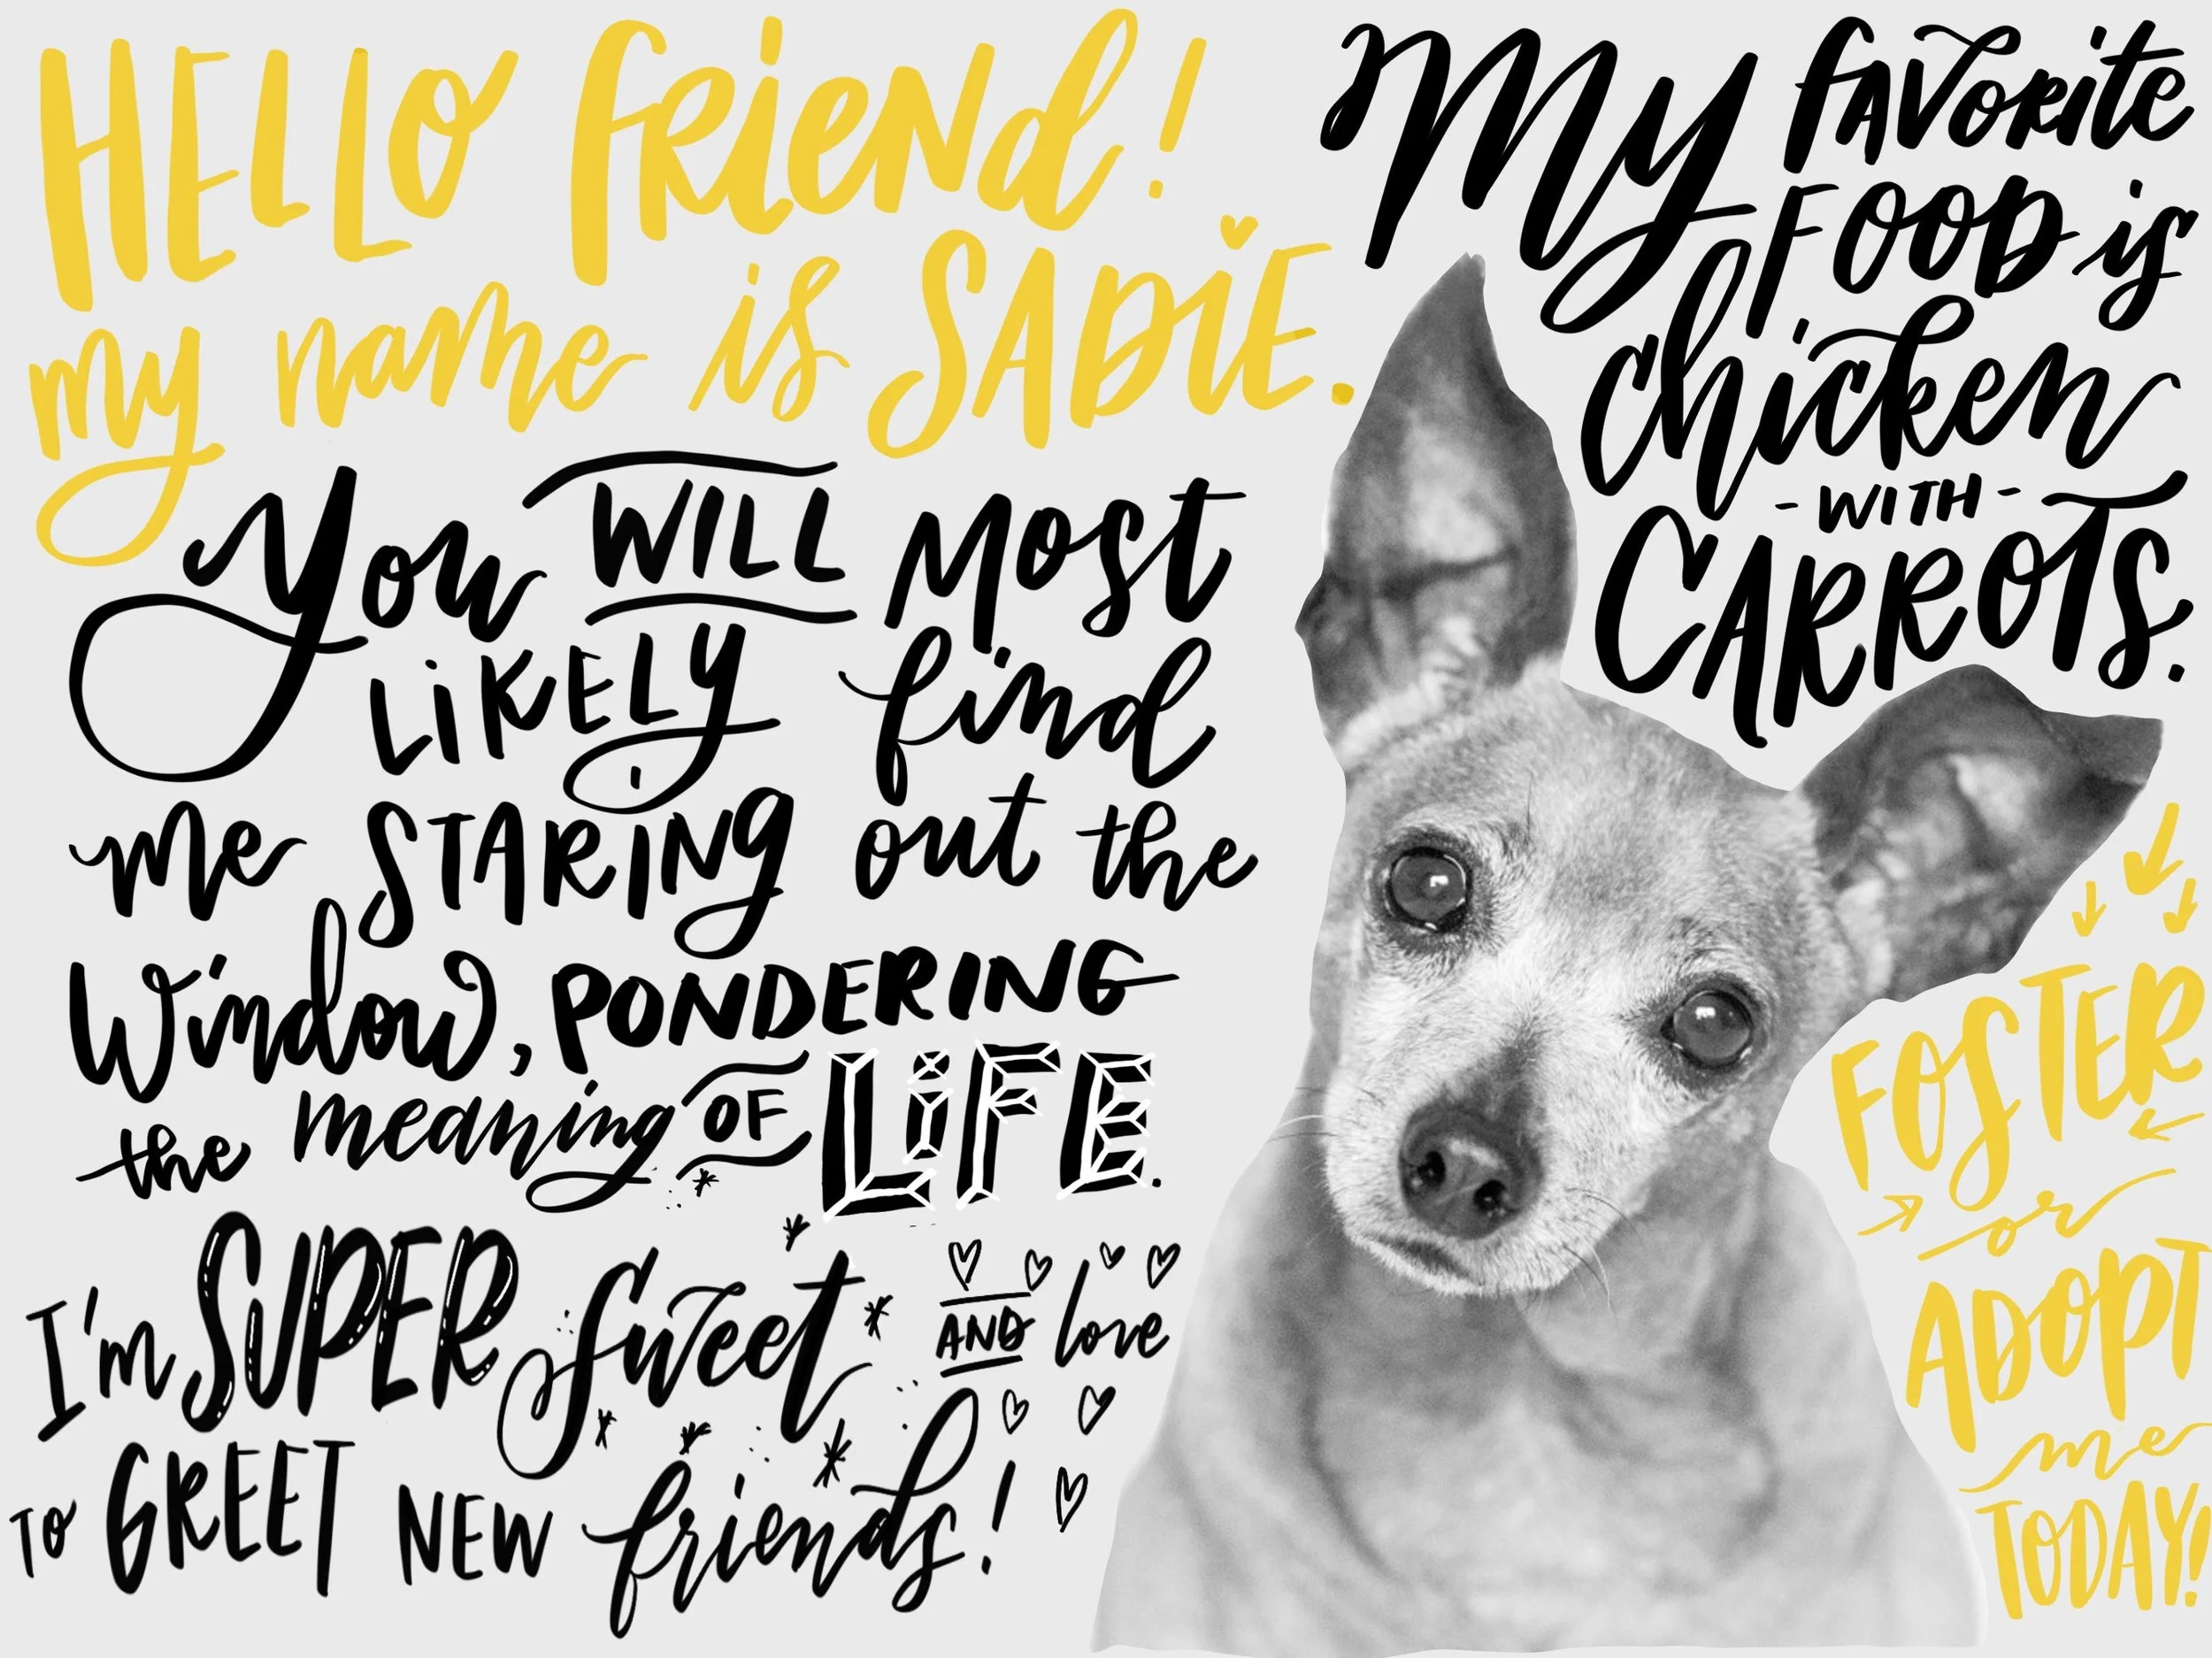 HELLO friend!
my name is SADIE.
You WILL most
LIKELY find
me STARING out the
Window, PONDERING
the meaning OF LIFE.
I'm SUPER Sweet AND love
TO GREET NEW friends!
My favorite
FOOD is
chicken
- WITH -
CARROTS.
FOSTER
or
ADOPT
me
TODAY!